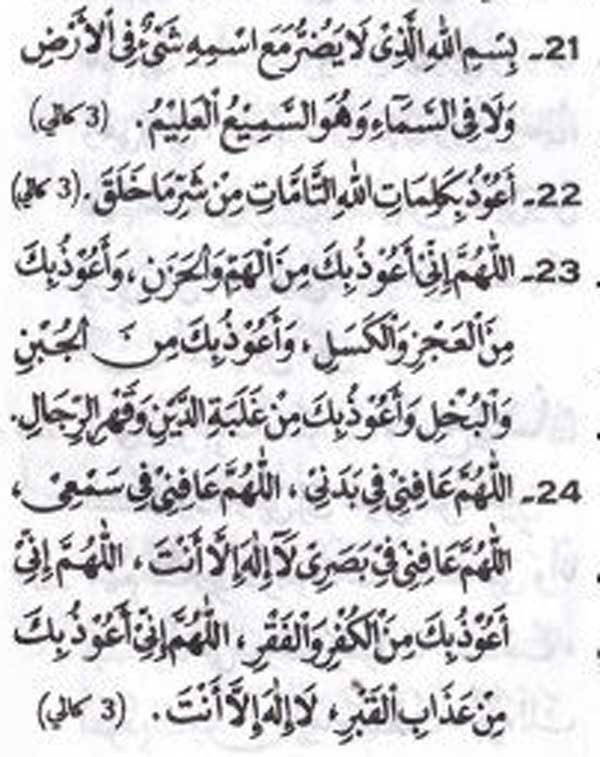 21ـ بِسْمِ اللهِ الَّذِىْ لَا يَضُرُّ مَعَ اسْمِهِ شَىْءٌ فِى اْلاَرْضِ
وَلَا فِى السَّمَآءِ وَهُوَ السَّمِيْعُ الْعَلِيْمُ. (3 كالي)
22ـ أَعُوْذُ بِكَلِمَاتِ اللهِ التَّامَّاتِ مِنْ شَرِّ مَا خَلَقَ. (3 كالي)
23ـ اَللّٰهُمَّ إِنِّىْ أَعُوْذُ بِكَ مِنَ الْهَمِّ وَالْحَزَنِ، وَأَعُوْذُ بِكَ
مِنَ الْعَجْزِ وَالْكَسَلِ، وَأَعُوْذُ بِكَ مِنَ الْجُبْنِ
وَالْبُخْلِ وَأَعُوْذُ بِكَ مِنْ غَلَبَةِ الدَّيْنِ وَقَهْرِ الرِّجَالِ.
24ـ اَللّٰهُمَّ عَافِنِىْ فِى بَدَنِىْ، اَللّٰهُمَّ عَافِنِىْ فِى سَمْعِىْ،
اَللّٰهُمَّ عَافِنِىْ فِىْ بَصَرِىْ لَآ إِلٰهَ إِلَّا أَنْتَ، اَللّٰهُمَّ إِنِّىْ
أَعُوْذُ بِكَ مِنَ الْكُفْرِ وَالْفَقْرِ، اَللّٰهُمَّ إِنِّىْ أَعُوْذُ بِكَ
مِنْ عَذَابِ الْقَبْرِ، لَا إِلٰهَ إِلَّا أَنْتَ. (3 كالي)